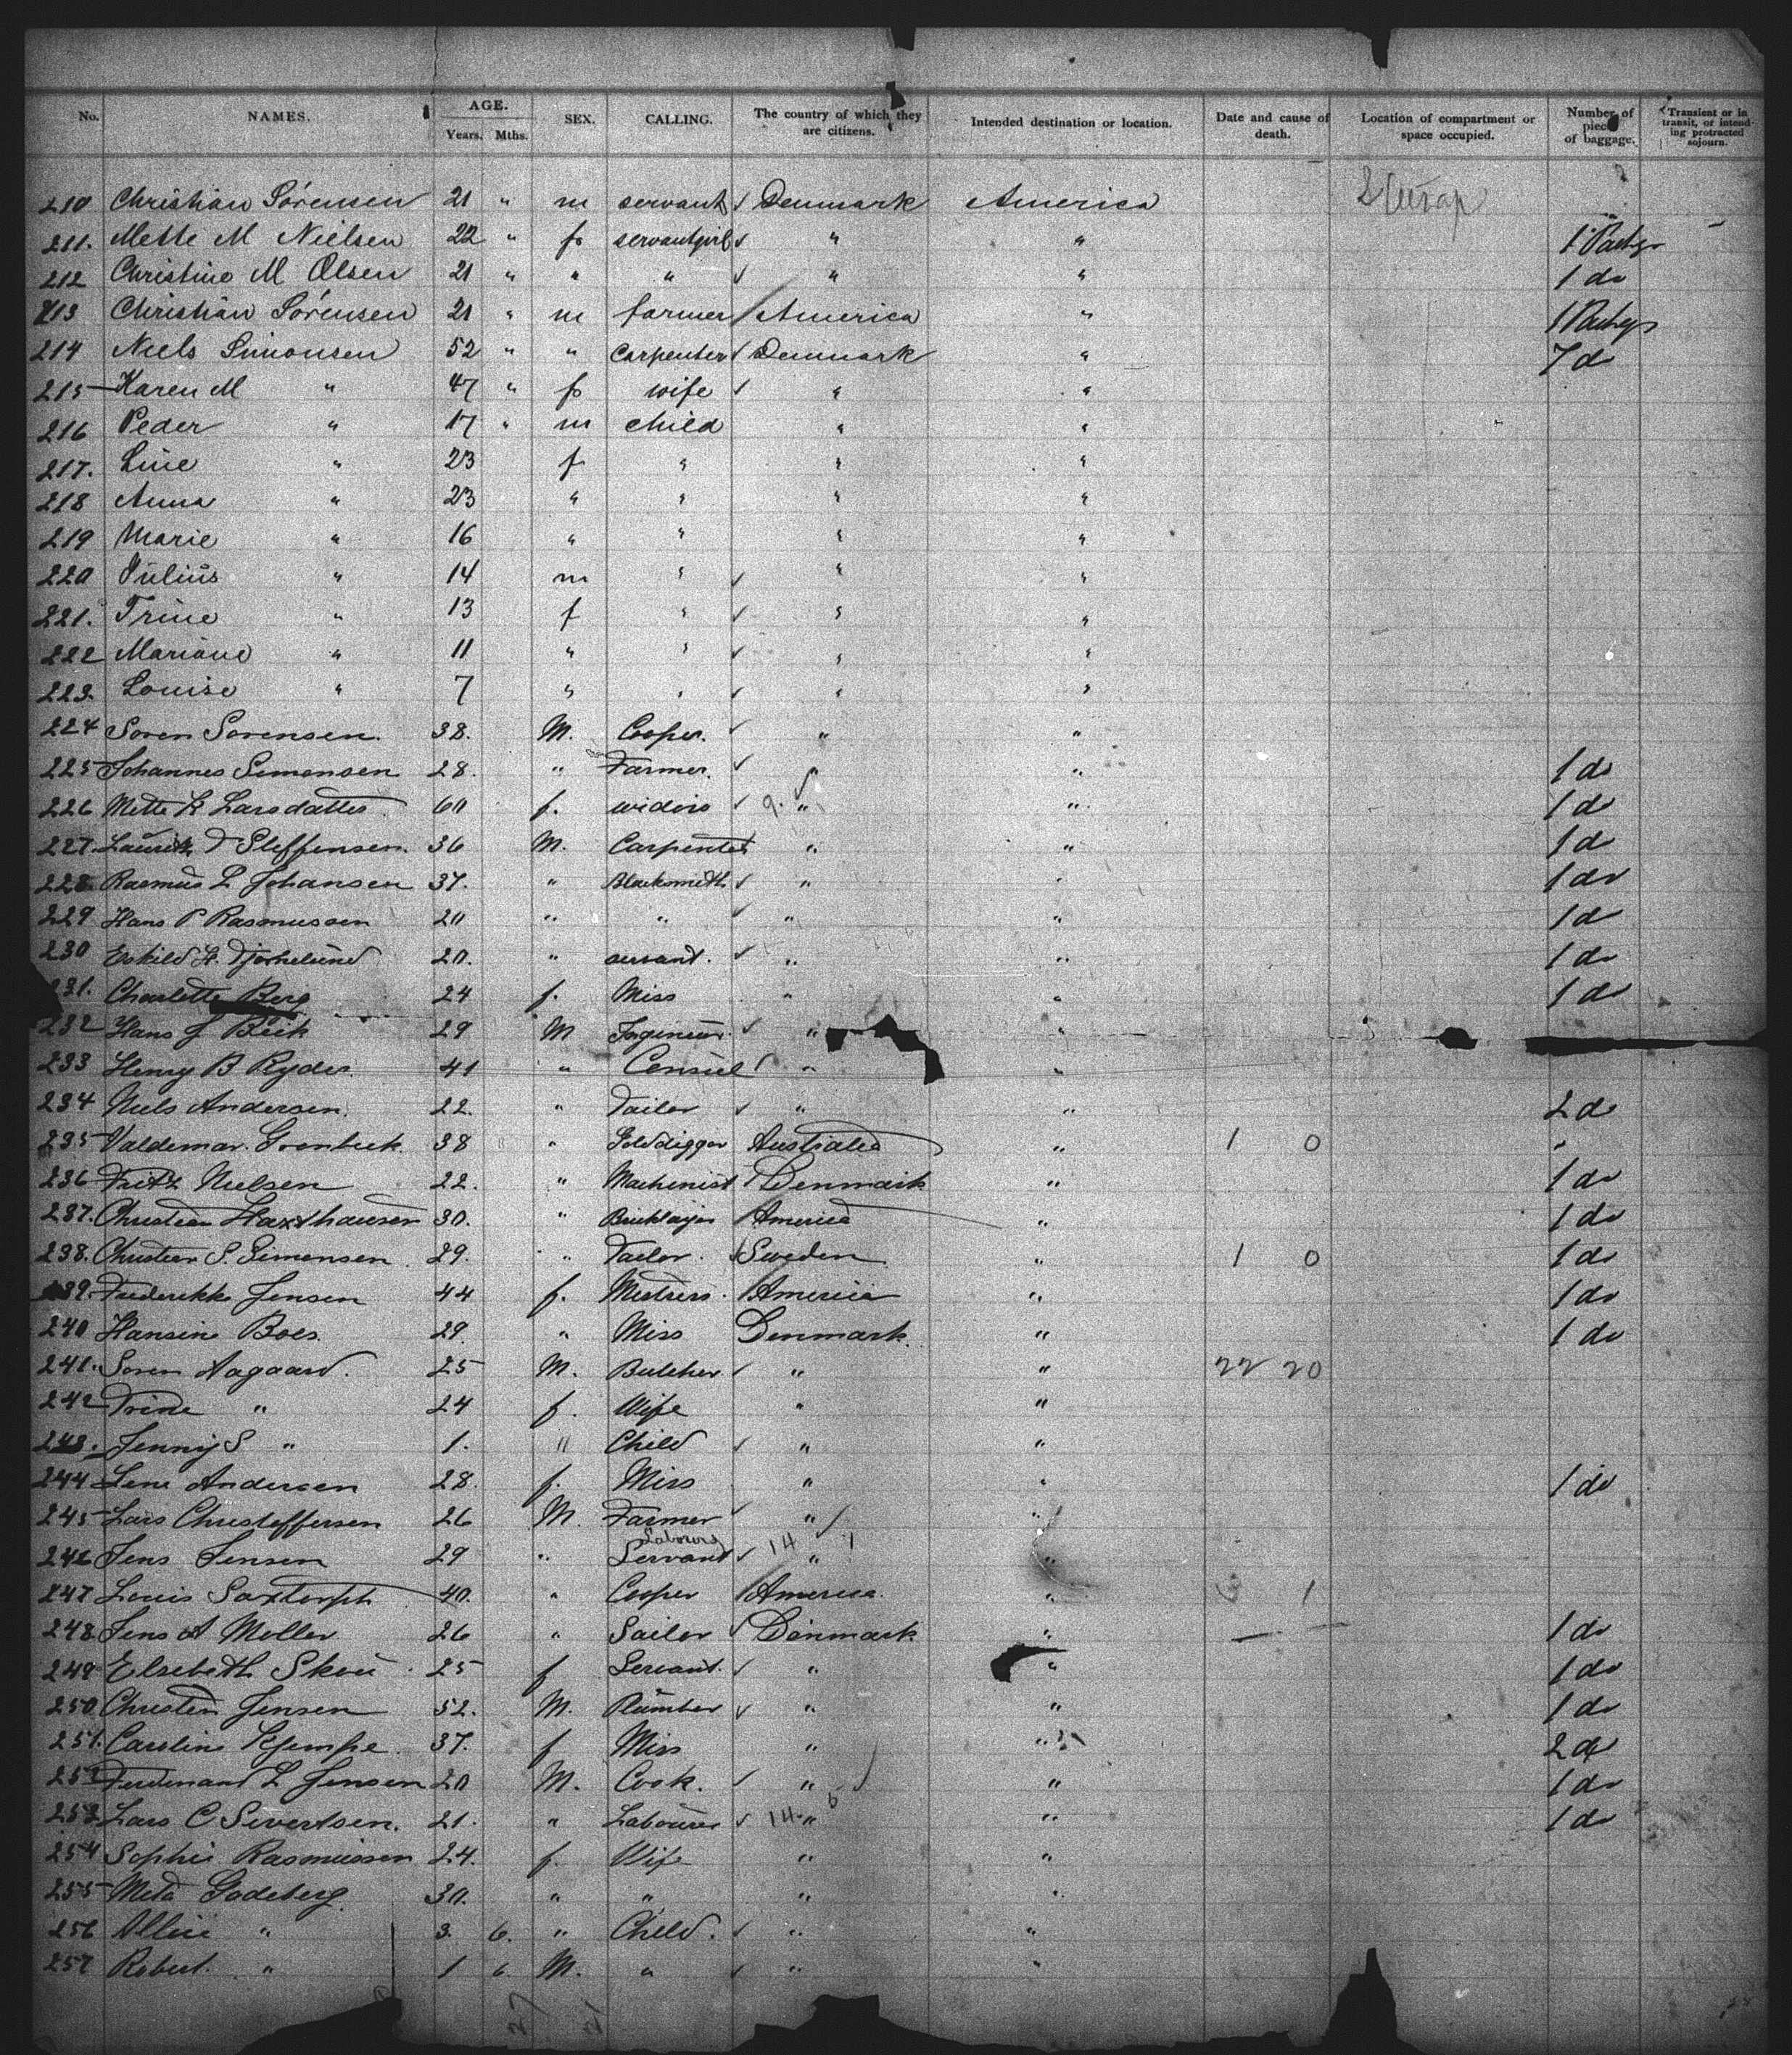 No. NAMES. AGE. Years. Mths. SEX. CALLING. The country of which they are citizens. Intended destination or location. Date and cause of death. Location of compartment or space occupied. Number of pieces of baggage. Transient or in transit, or intending protracted sojourn.
210 Christian Sörensen 21 " m servant ✓ Denmark America
211. Mette M Nielsen 22 " f servantgirl ✓ " " 1
212 Christine M Olsen 21 " " " ✓ " " 1 do
213 Christian Sörensen 21 " m farmer / America " 1
214 Niels Simonsen 52 " " carpenter ✓ Denmark " 7 do
215 Karen M " 47 " f wife ✓ " "
216 Peder " 17 " m child " "
217. Line " 23 f " " "
218 Anna " 23 " " " "
219 Marie " 16 " " " "
220 Julius " 14 m " ✓ " "
221. Trine " 13 f " ✓ " "
222 Mariane " 11 " " ✓ " "
223. Louise " 7 " " ✓ " "
224 Soren Sorensen. 38. M. Cooper. ✓ " "
225 Johannes Simonsen 28. " Farmer. ✓ " " 1 do
226 Mette K Larsdatter 60 f. widow ✓ 9. " " 1 do
227. Lauritz Steffensen. 36 M. Carpenter " " 1 do
228. Rasmus L Johansen 37. " Blacksmith ✓ " " 1 do
229 Hans P Rasmussen 20 " " ✓ " " 1 do
230 Eskild H. 20. " servant. ✓ " " 1 do
231. Charlotte Berg 24 f. Miss " " 1 do
232 Hans J Beck 29 M Ingenieur. ✓ " "
233 Henry B Ryder. 41 " Consul ✓ " "
234 Niels Andersen. 22. " Tailor ✓ " " 2 do
235 Valdemar. Gronbeck. 38 " Golddigger Australia " 1 0 "
236 Fritz Nielsen 22. " Machinist Denmark " 1 do
237. Christian Haxthausen 30. " Bricklayer / America " 1 do
238. Christian S. Simonsen. 29. " Tailor. ✓ Sweden " 1 0 1 do
239. Frederikke Jensen 44 f. Mistress. / America " 1 do
240 Hansine Boes. 29. " Miss Denmark. " 1 do
241. Soren Aagaard. 25 M. Butcher ✓ " " 22 20
242 Trine " 24 f. Wife " "
243. Jenny S " 1. " Child ✓ " "
244 Lene Andersen 28. f. Miss " " 1 do
245 Lars Christoffersen 26 M. Farmer ✓ " "
246 Jens Jensen 29 " Labourer Servant ✓ 14 " 1 "
247 Louis Saxtorph 40. " Cooper / America. " 3 1
248. Jens A Moller 26 " Sailor ✓ Denmark " — 1 do
249 Elsebeth Skou 25 f Servant. ✓ " " 1 do
250 Christen Jensen 52. M. Plumber ✓ " " 1 do
251. Caroline Kjempe. 37. f Miss " " 2 do
252 Ferdinand L Jensen 20 M. Cook. ✓ " ✓ " 1 do
253 Lars C Sivertsen. 21. " Labourer ✓ 14 " 6 " 1 do
254 Sophie Rasmussen 24. f. Wife " "
255 Meta Godeberg. 30. " " " "
256 " 3. 6. " Child. ✓ " "
257 Robert. " 1 6. M. " ✓ " "
27 21